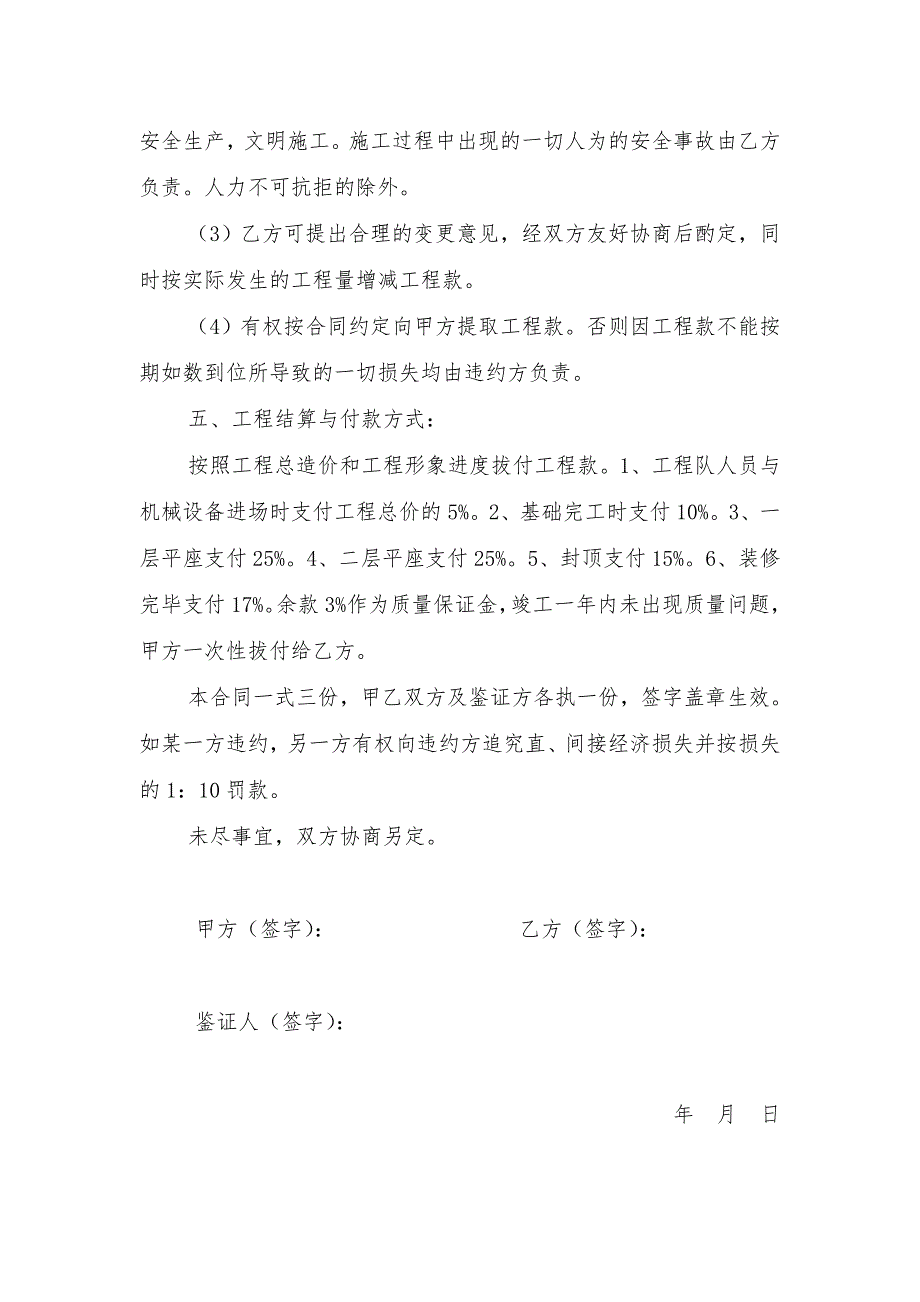 安全生产，文明施工。施工过程中出现的一切人为的安全事故由乙方
负责。人力不可抗拒的除外。
（3）乙方可提出合理的变更意见，经双方友好协商后酌定，同
时按实际发生的工程量增减工程款。
（4）有权按合同约定向甲方提取工程款。否则因工程款不能按
期如数到位所导致的一切损失均由违约方负责。
五、工程结算与付款方式：
按照工程总造价和工程形象进度拔付工程款。1、工程队人员与
机械设备进场时支付工程总价的5%。2、基础完工时支付10%。3、一
层平座支付25%。4、二层平座支付25%。5、封顶支付15%。6、装修
完毕支付17%。余款3%作为质量保证金，竣工一年内未出现质量问题，
甲方一次性拔付给乙方。
本合同一式三份，甲乙双方及鉴证方各执一份，签字盖章生效。
如某一方违约，另一方有权向违约方追究直、间接经济损失并按损失
的1：10罚款。
未尽事宜，双方协商另定。
甲方（签字）： 乙方（签字）：
鉴证人（签字）：
年 月 日